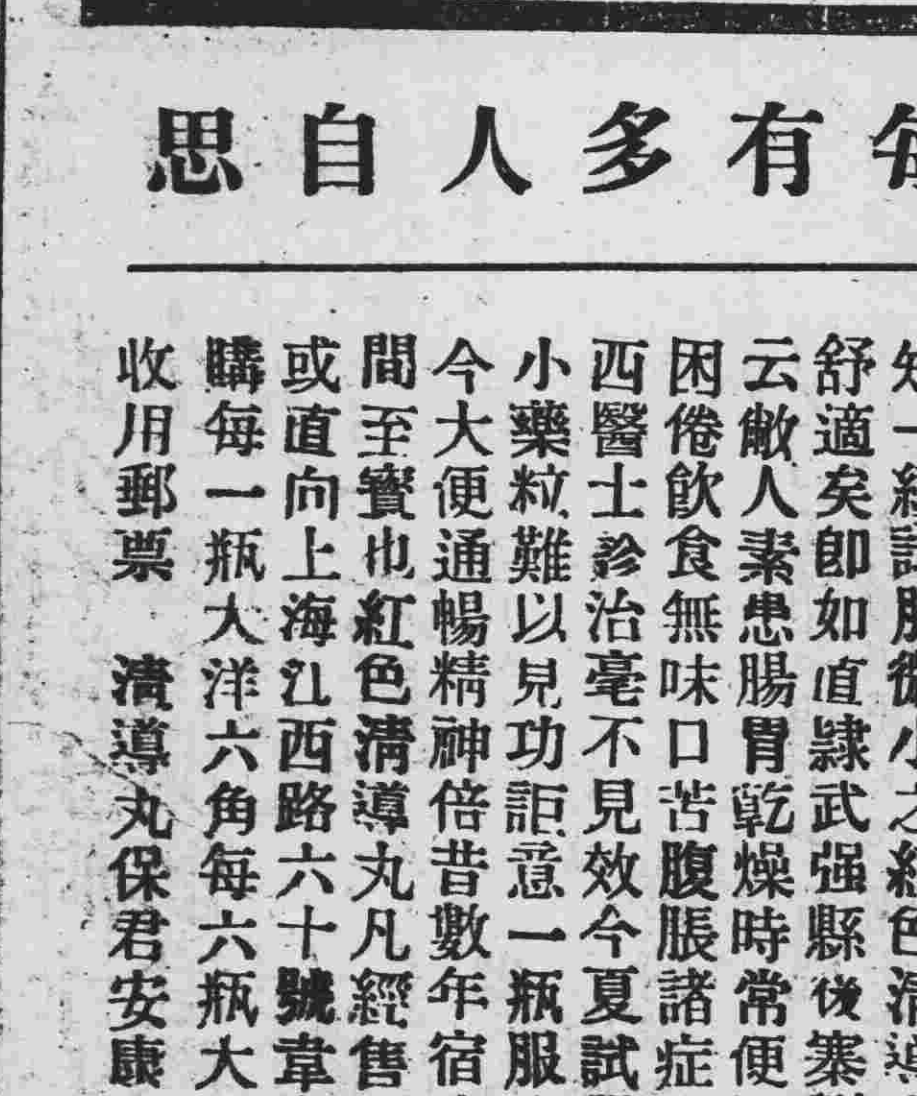 每有多人自思
知一經試服微小之紅色清導
舒適矣卽如直隸武强縣後寨
云敝人素患腸胃乾燥時常便
困倦飲食無味口苦腹脹諸症
西醫士診治毫不見效今夏試
小藥粒難以見功詎意一瓶服
今大便通暢精神倍昔數年宿
間至寳也紅色清導丸凡經售
或直向上海江西路六十號韋
購每一瓶大洋六角每六瓶大
收用郵票 清導丸保君安康